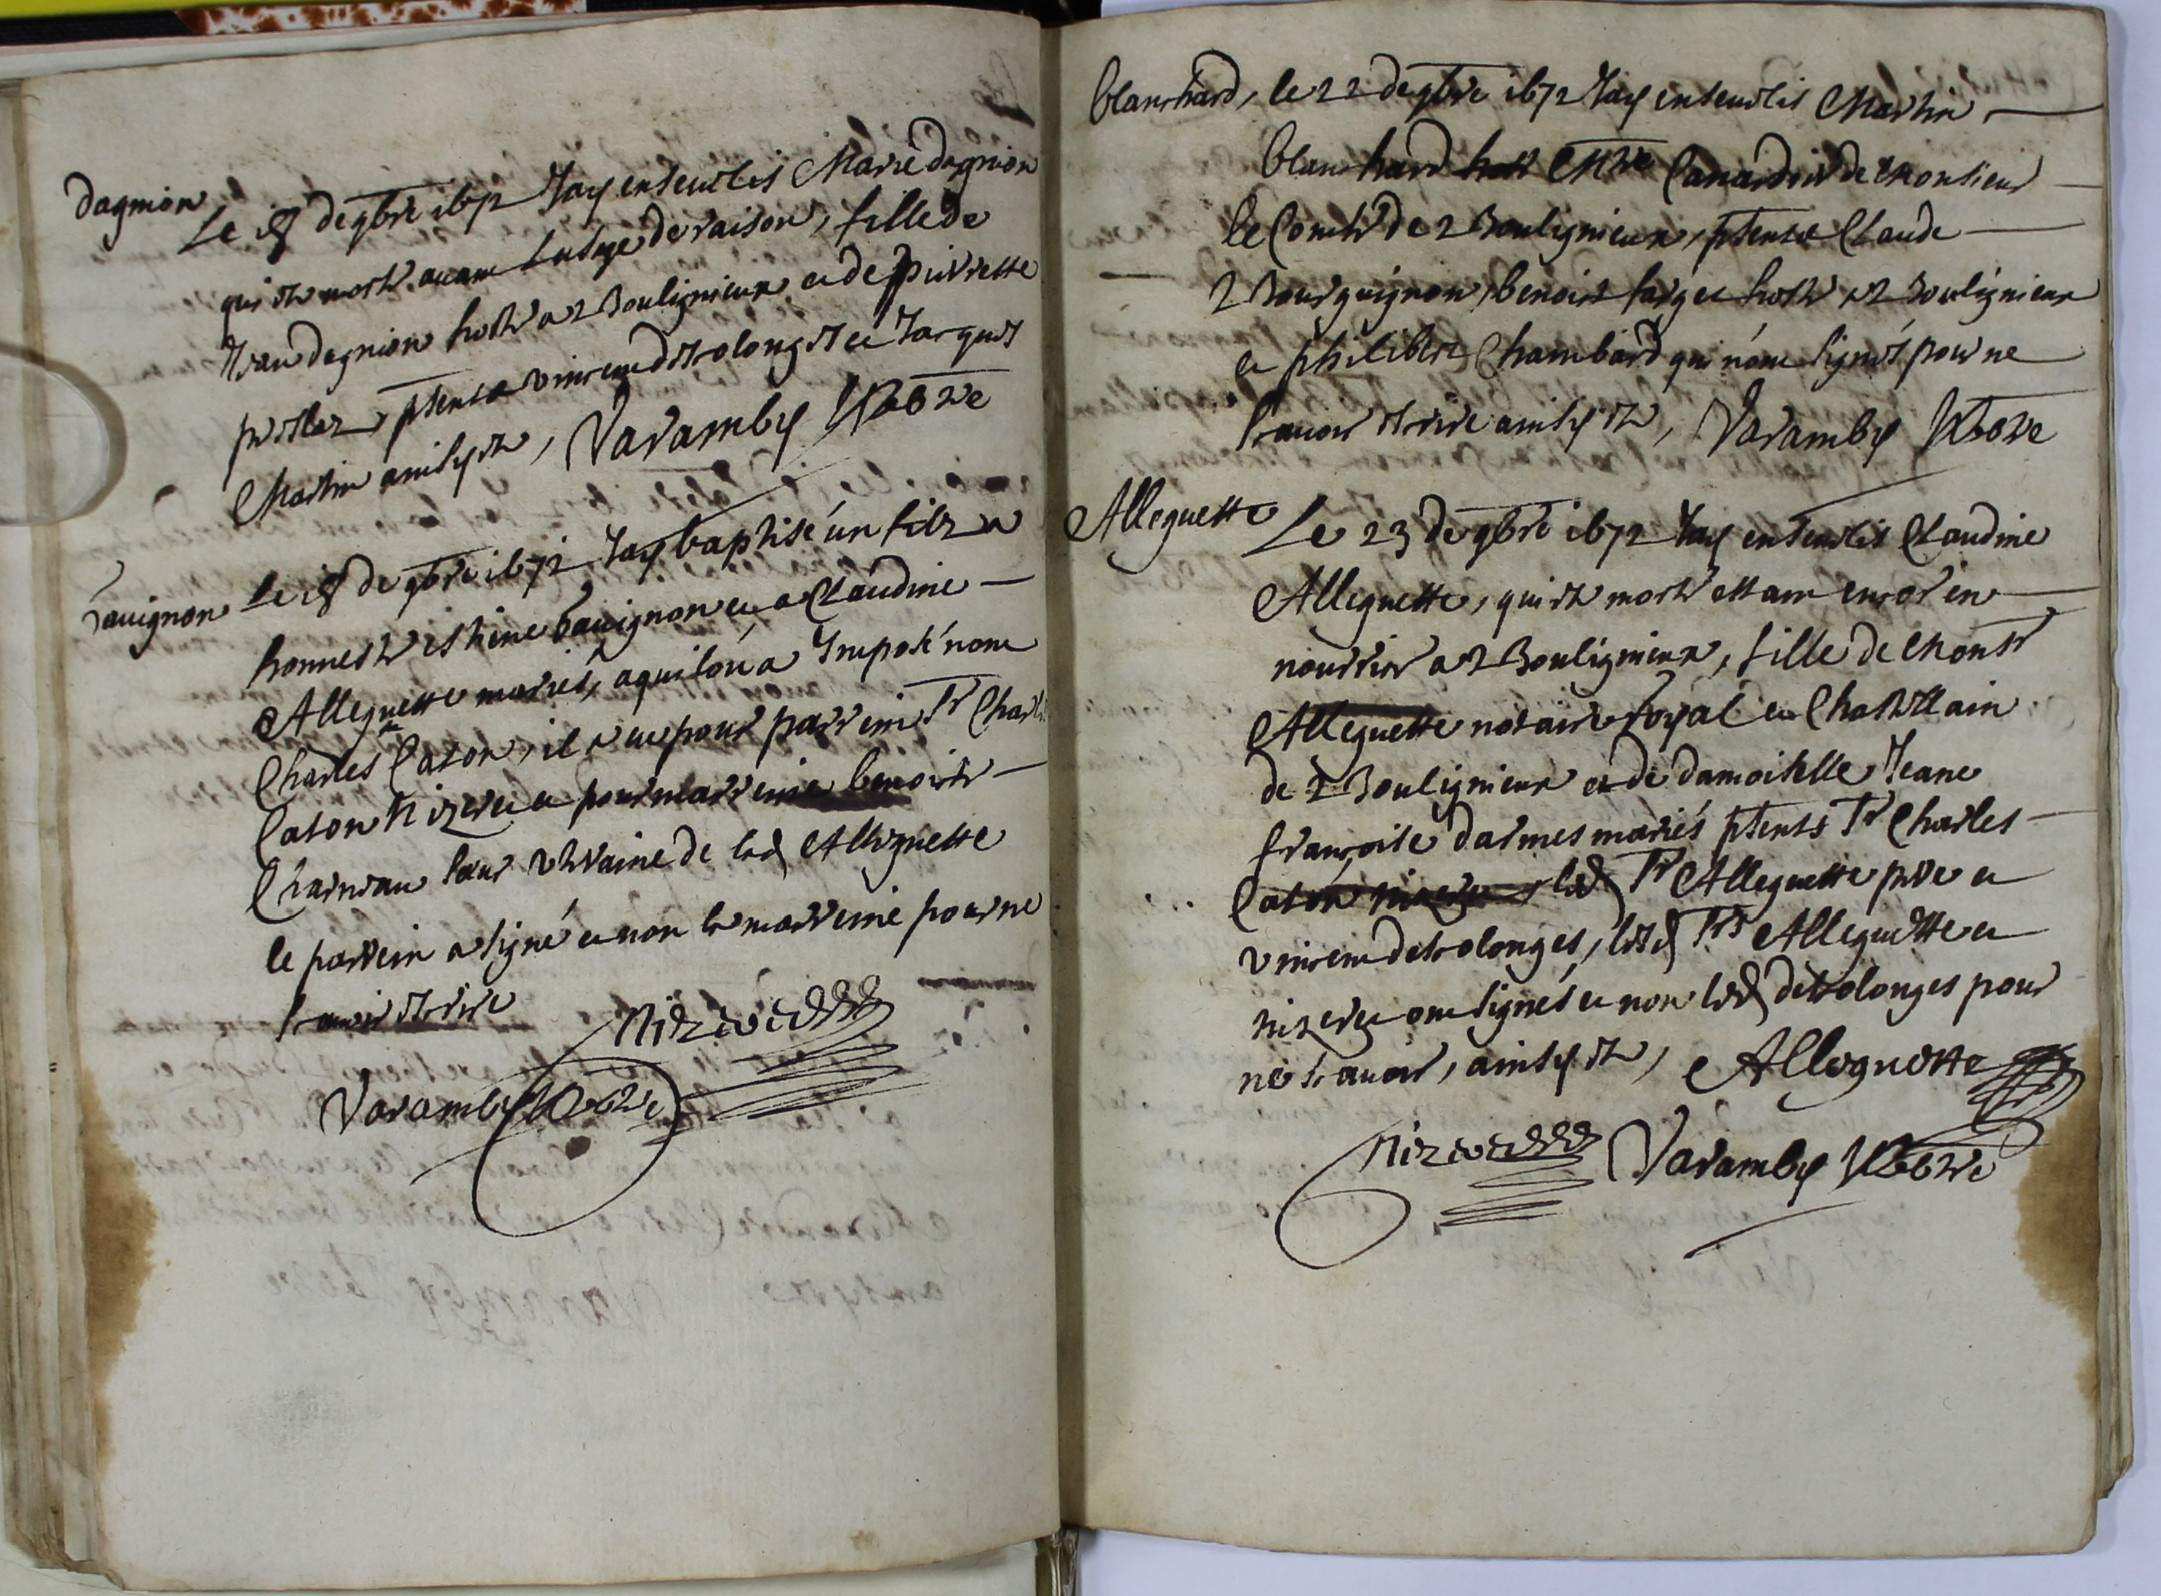 dagnion
Le 18 de 9bre 1672 Jay enseuelis Marie dagnion
qui est morte auant lusage de raison, fille de
Jean dagnion hoste a Bouligneux et de pierrette
presentz vincend Martin ainsy est, Varamby Vicaire
bauignon
Le 18 de 9bre 1672 Jay baptisé un filz a
honneste estiene bauignon et a Claudine
Alleguette mariés, aquil on a Imposé nom
Charles Caton, il a eu pour parrein Sr Charles
Caton Nizerey et pour marreine benoiste
le parrein a signé et non la marreine pour ne
scauoir escrire
Nizerey
Varamby Vicaire
blanchard, le 22 de 9bre 1672 Jay enseuelis Martin
blanchard Canardier de Monsieur
le Comte de Bouligneux, ptents Claude
Bourguignon, benoist farges hoste a Bouligneux
et philibert Chambard qui nont signés pour ne
scauoir escrire ainsy est, Varamby Vicaire
Alleguette
Le 23 de 9bre 1672 Jay enseuelis Claudine
Alleguette, qui est morte estant encor en
nourrice a Bouligneux, fille de Monsr
Alleguette notaire Royal et Chastellain
de Bouligneux et de damoiselle Jeane
francoise darmes mariés ptents Sr Charles
Caton nizerey led Sr Alleguette pere et
vincend desolonges, lesd Srs Alleguette et
nizerey ont signés et non led desolonges pour
ne scauoir, ainsy est, Alleguette
Nizerey Varamby Vicaire